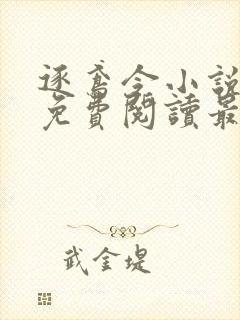 逐鸢令小說
免費閱讀最
武金堤